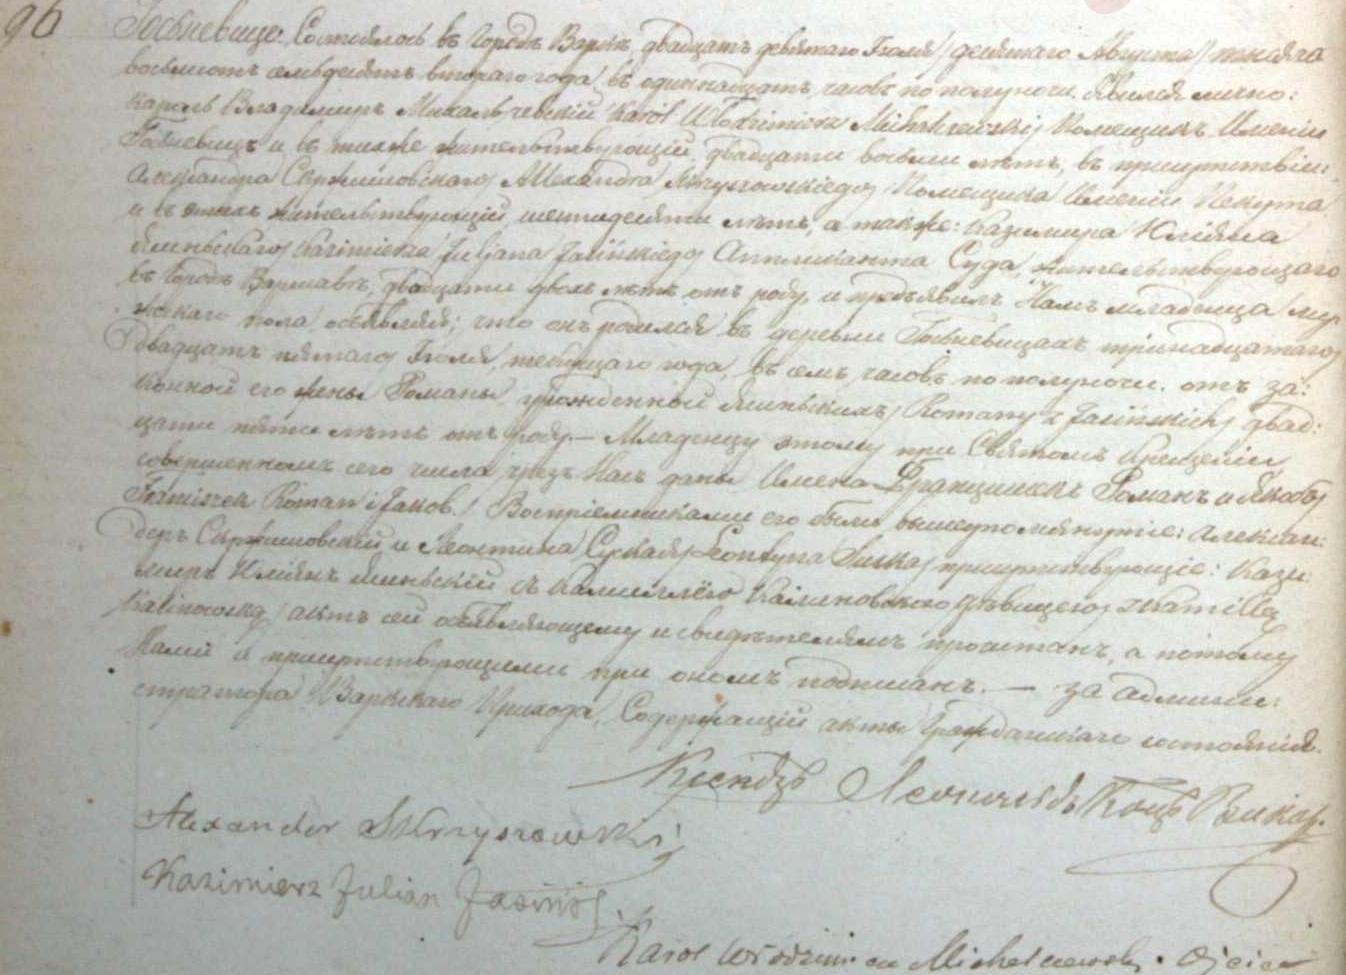 96
Гостевице. Состоялось въ Городѣ Варкѣ, двадцать девятаго Іюля / десятаго Августа / тысяча
восемьсотъ семьдесятъ втораго года, въ одиннадцать часовъ по полуночи. Явился лично:
Кароль Владимиръ Михальчевскій / Karol Włodzimierz Michalczewski / Помещикъ Имении
и въ тихже жительствующій, двадцати восьми лѣтъ, въ присутствіи:
Александра / Alexandra Skrzyszowskiego / Помещика Имении
и въ жительствующій, шестидесяти лѣтъ, а также: Казимира Юліяна
Ясиньскаго / Kazimierza Juljana Jasińskiego / Аппликанта Суда, жительствующаго
въ Городѣ Варшавѣ, двадцати двохъ лѣтъ отъ роду, и предъявилъ Намъ младенца муж
жскаго пола, объявляя; что онъ родился въ деревни тринадцатаго /
двадцать пятаго / Іюля, текущаго года, въ семъ часовъ по полуночи. отъ за:
конной его жены Романы, урожденной Ясиньскихъ / Romany z Jasińskich / двад:
цати пяти лѣтъ отъ роду. — Младенцу этому при Святомъ Крещеніи
совершенномъ сего числа чрезъ Насъ даны Имена Францишекъ Романъ и Якобъ /
Franciszek Roman i Jakob. / Воспріемниками его были вышеупомянутіе: Алексан:
деръ и Леонтина / Leontyna / присутствующіе: Кази
миръ Юліянъ Ясиньскій съ Камиллею Калиновскою дѣвицею / z Kamillą
Kalinowską / актъ сей объявляющему и свидѣтелямъ прочитанъ, а потому
Нами и присутствующими при ономъ подписанъ. — за Админи:
стратора Варкскаго Прихода, Содержащій акты Гражданскаго состоянія.
Ксендзъ Викар.
Alexander Skrzyszowski
Kazimierz Julian Jasiński.
Karol Włodzimierz Michalczewski. Ojciec